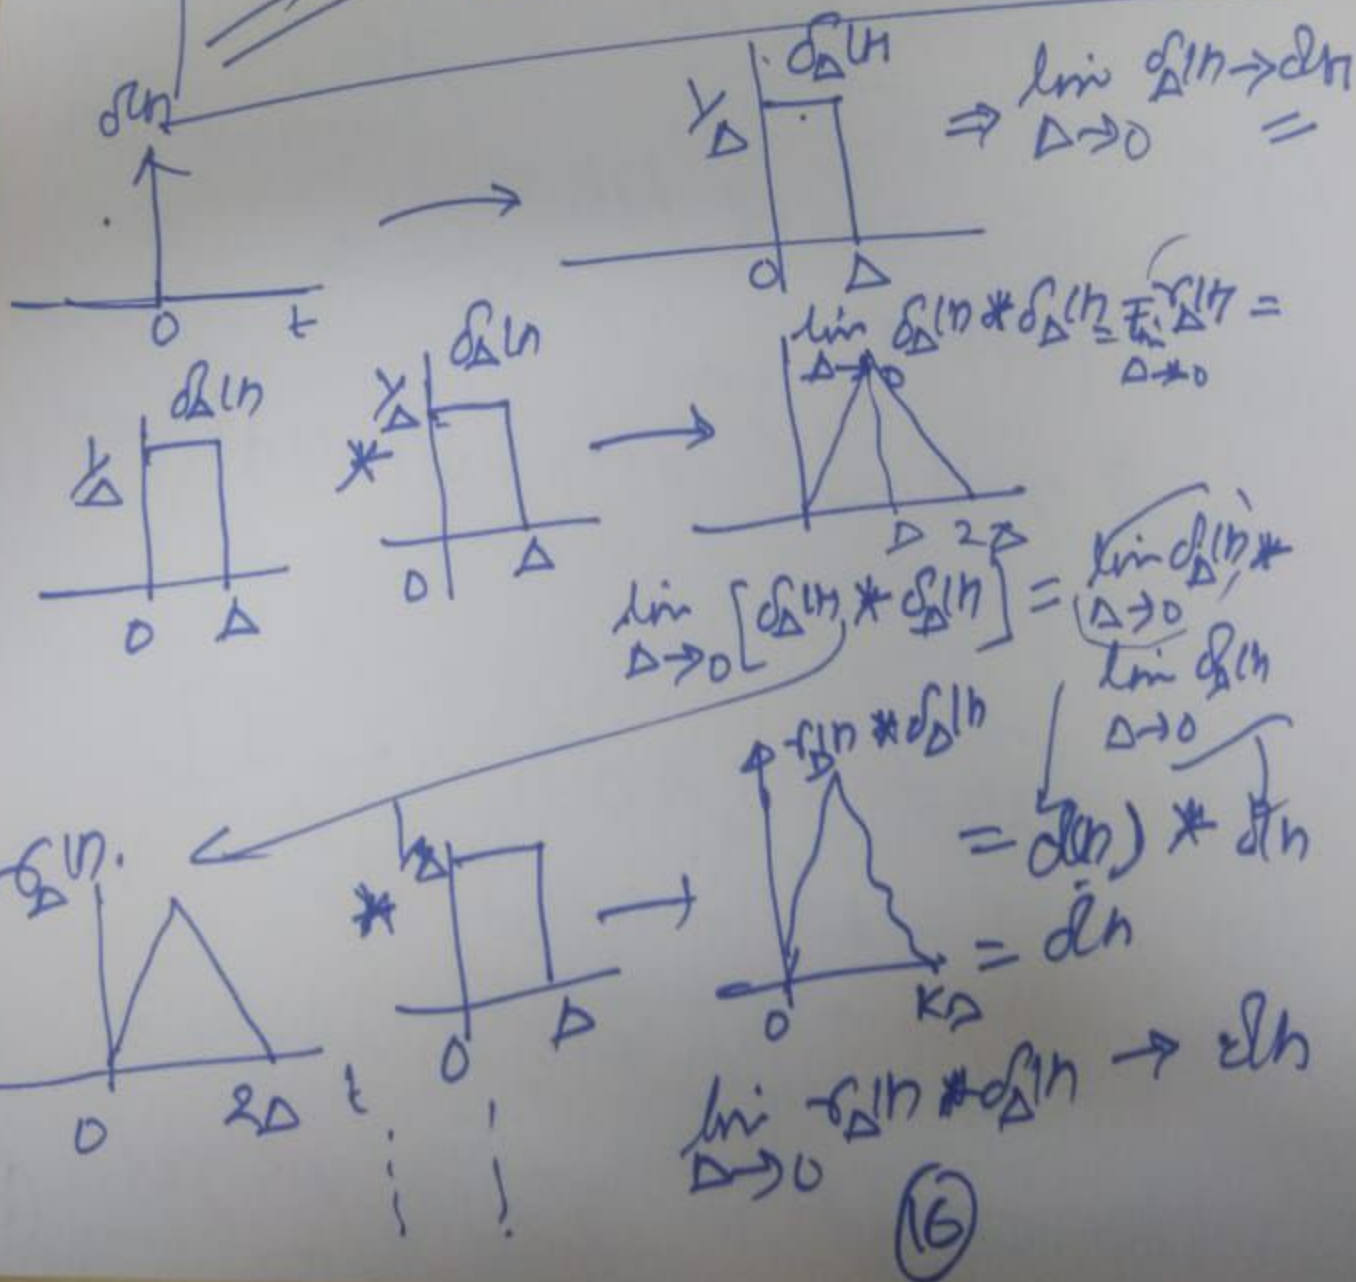 δ(t)
0 t
δ_Δ(t)
1/Δ
0 Δ
⇒ lim δ_Δ(t) → δ(t)
Δ→0
δ_Δ(t)
1/Δ
0 Δ
*
δ_Δ(t)
1/Δ
0 Δ
lim δ_Δ(t) * δ_Δ(t) = r_Δ(t) =
Δ→0 Δ→0
Δ 2Δ
lim [δ_Δ(t) * δ_Δ(t)] = lim δ_Δ(t) *
Δ→0 Δ→0
lim δ_Δ(t)
Δ→0
= δ(t) * δ(t)
= δ(t)
r_Δ(t)
0 2Δ t
*
1/Δ
0 Δ
r_Δ(t) * δ_Δ(t)
0 KΔ
lim r_Δ(t) * δ_Δ(t) → δ(t)
Δ→0
16